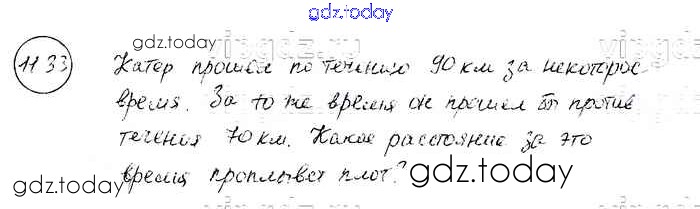 gdz.today
gdz.today
1133 Катер прошел по течению 90 км за некоторое
время. За то же время он прошел бы против
течения 70 км. Какое расстояние за это
время проплывет плот?
gdz.today
gdz.today